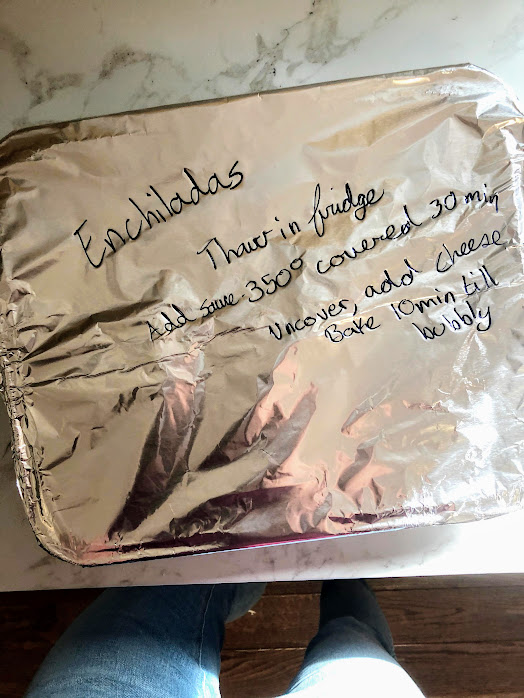 Enchiladas
Thaw in fridge
Add Sauce. 350° covered 30 min
Uncover, add cheese
Bake 10min till
bubbly